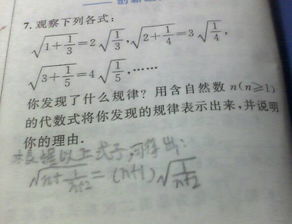 7. 观察下列各式：
√(1+1/3)=2√(1/3), √(2+1/4)=3√(1/4),
√(3+1/5)=4√(1/5), ……
你发现了什么规律？用含自然数 n(n≥1)
的代数式将你发现的规律表示出来，并说明
你的理由.
根据以上式子，可得出：
√(n+1/(n+2))=(n+1)√(1/(n+2))